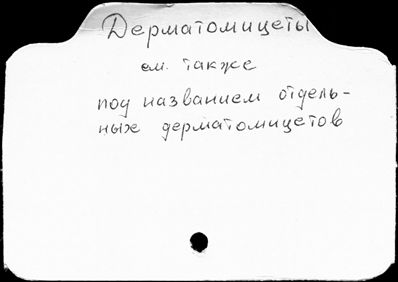 Дерматомицеты
см. также
под названием отдель-
ных дерматомицетов